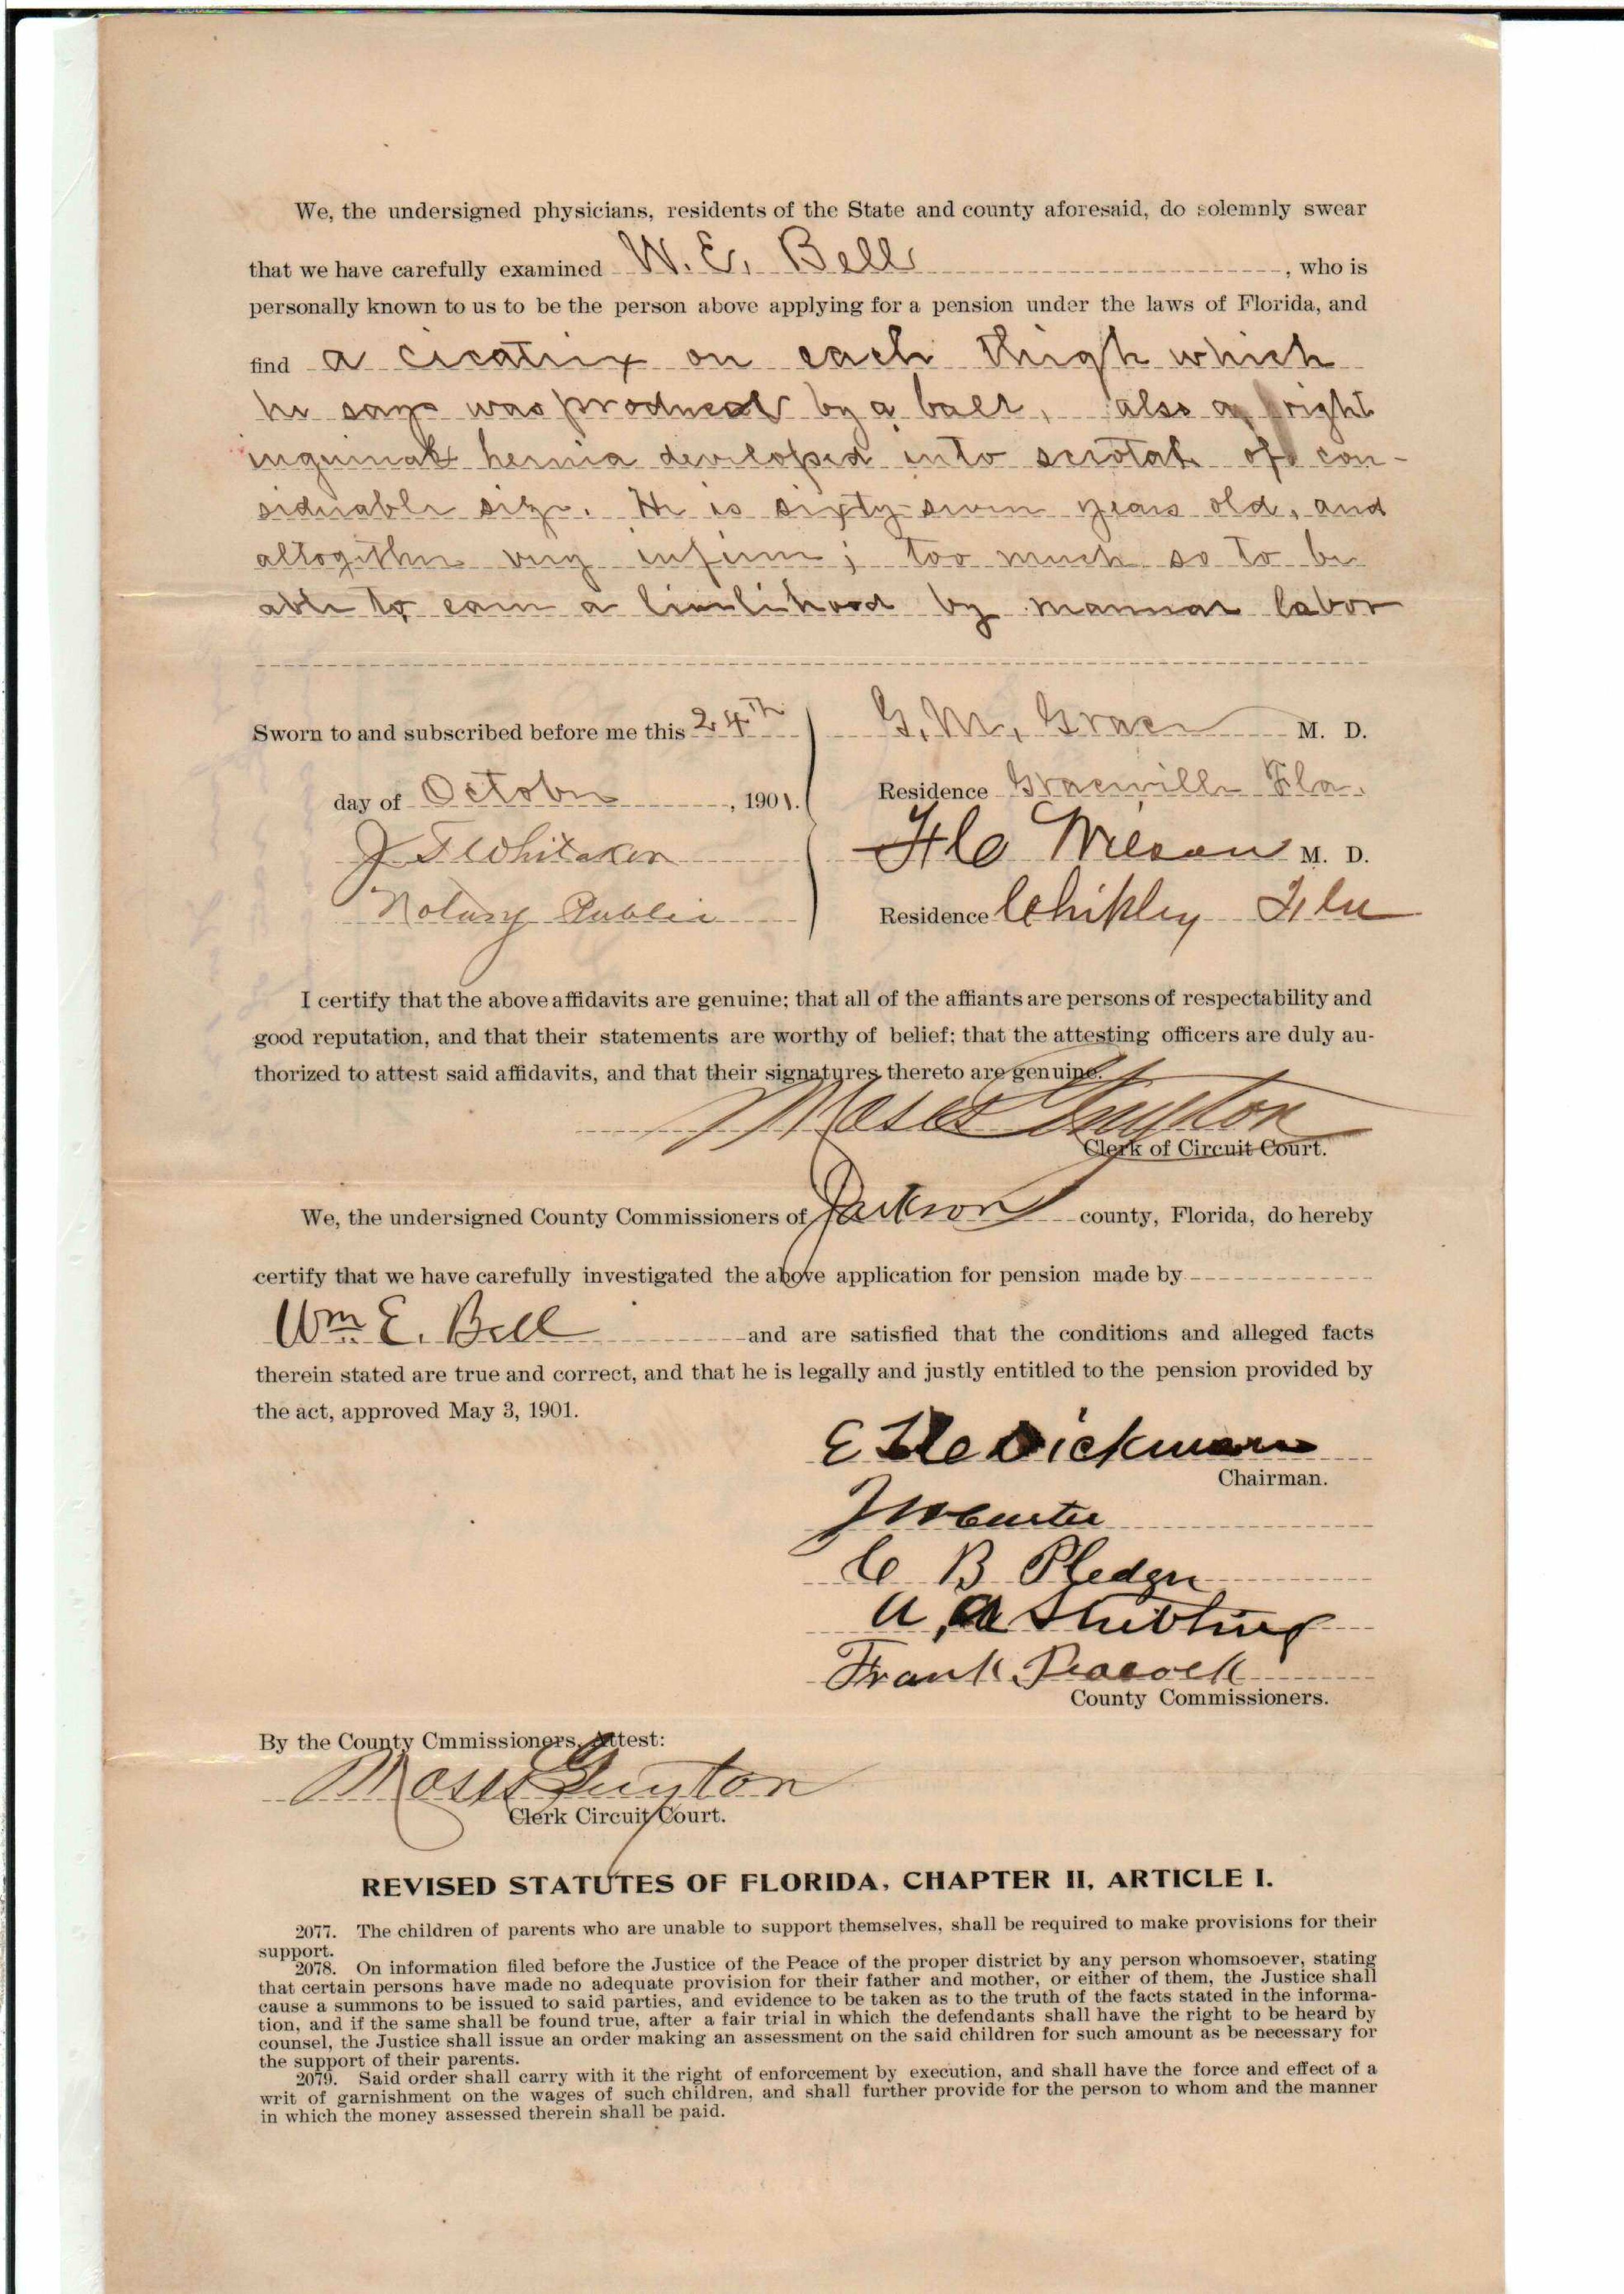 We, the undersigned physicians, residents of the State and county aforesaid, do solemnly swear
that we have carefully examined W. E. Bell, who is
personally known to us to be the person above applying for a pension under the laws of Florida, and
find a cicatrix on each thigh which
he says was produced by a ball, also a right
inguinal hernia developed into scrotal of con-
siderable size. He is sixty-seven years old, and
altogether very infirm; too much so to be
able to earn a livelihood by manual labor
Sworn to and subscribed before me this 24th
G. M. Grace M. D.
day of October, 1901.
Residence Graceville Fla.
J F Whitaker
Wilson M. D.
Notary Public
Residence Chipley Fla
I certify that the above affidavits are genuine; that all of the affiants are persons of respectability and
good reputation, and that their statements are worthy of belief; that the attesting officers are duly au-
thorized to attest said affidavits, and that their signatures thereto are genuine.
Moses Guyton
Clerk of Circuit Court.
We, the undersigned County Commissioners of Jackson county, Florida, do hereby
certify that we have carefully investigated the above application for pension made by
Wm E. Bell and are satisfied that the conditions and alleged facts
therein stated are true and correct, and that he is legally and justly entitled to the pension provided by
the act, approved May 3, 1901.
Dickman
Chairman.
C B Pledger
Frank Peacock
County Commissioners.
By the County Cmmissioners, Attest:
Moses Guyton
Clerk Circuit Court.
REVISED STATUTES OF FLORIDA, CHAPTER II, ARTICLE I.
2077. The children of parents who are unable to support themselves, shall be required to make provisions for their
support.
2078. On information filed before the Justice of the Peace of the proper district by any person whomsoever, stating
that certain persons have made no adequate provision for their father and mother, or either of them, the Justice shall
cause a summons to be issued to said parties, and evidence to be taken as to the truth of the facts stated in the informa-
tion, and if the same shall be found true, after a fair trial in which the defendants shall have the right to be heard by
counsel, the Justice shall issue an order making an assessment on the said children for such amount as be necessary for
the support of their parents.
2079. Said order shall carry with it the right of enforcement by execution, and shall have the force and effect of a
writ of garnishment on the wages of such children, and shall further provide for the person to whom and the manner
in which the money assessed therein shall be paid.